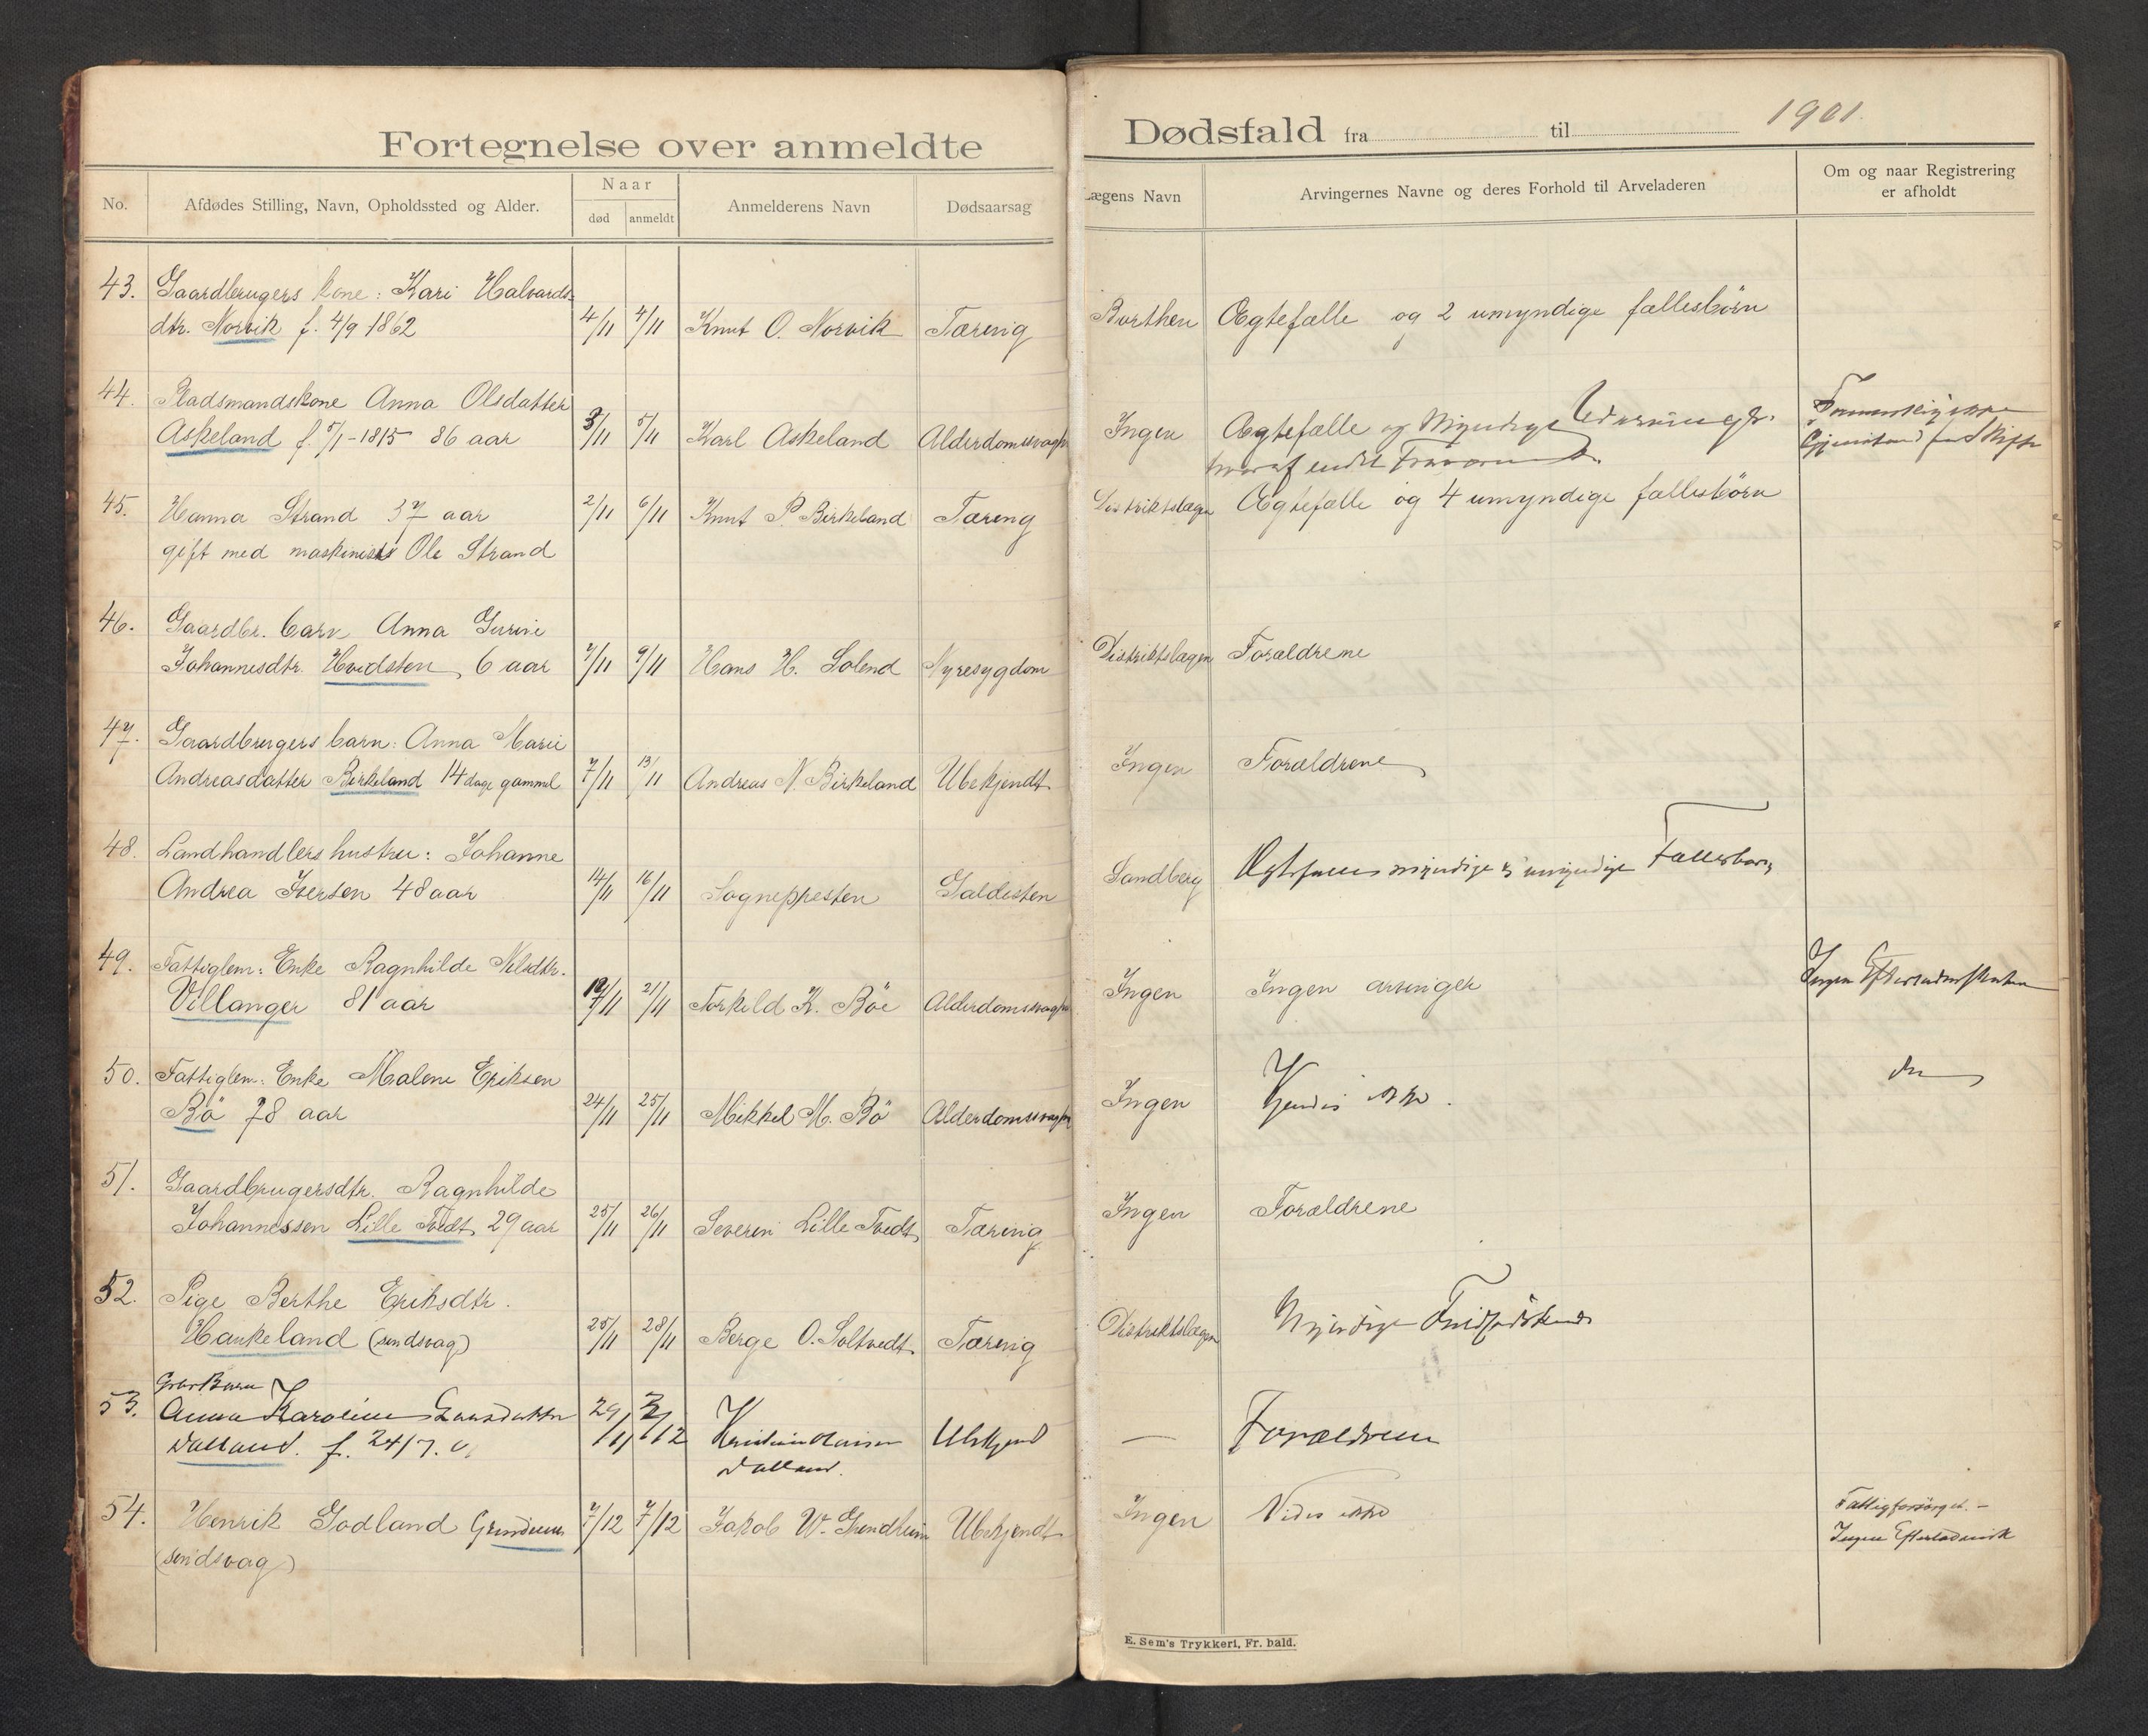 Fortegnelse over anmeldte
Dødsfald fra til 1901.
No. Afdødes Stilling, Navn, Opholdssted og Alder. Naar død anmeldt Anmelderens Navn Dødsaarsag
Lægens Navn Arvingernes Navne og deres Forhold til Arveladeren Om og naar Registrering er afholdt
43. Gaardbrugers kone: Kari Halvards-
dtr. Norvik f. 4/9 1862 4/11 4/11 Knut O. Norvik Tæring Borthen Ægtefælle og 2 umyndige fællesbörn
44. Pladsmandskone Anna Olsdatter
Askeland f. 5/1-1815 86 aar 3/11 5/11 Karl Askeland Alderdomssvagh Ingen Ægtefælle og Myndige
45. Hanna Strand 37 aar 2/11 6/11 Knut P. Birkeland Tæring Distriktslægen Ægtefælle og 4 umyndige fællesbörn
gift med maskinist Ole Strand
46. Gaardbr. barn Anna Gurine
Johannesdtr. Hvidsten, 6 aar 7/11 9/11 Hans H. Solend Nyresygdom Distriktslægen Forældrene
47. Gaardbrugers barn: Anna Marie
Andreasdatter Birkeland 14 dage gammel 7/11 13/11 Andreas N. Birkeland Ubekjendt Ingen Forældrene
48. Landhandlers hustru: Johanne
Andrea Iversen 48 aar 14/11 16/11 Sognepresten Galdesten Sandberg myndige umyndige Fællesbørn
49. Fattiglem: Enke Ragnhilde Nilsdtr.
Villanger 81 aar 21/11 Torkild K. Böe Alderdomssvagh Ingen Ingen arvinger Ingen
50. Fattiglem: Enke Malene Eriksen
Bö 78 aar 24/11 25/11 Mikkel M. Bö Alderdomssvagh Ingen Kjendes ikke.
51. Gaardbrugersdtr. Ragnhilde
Johannessen Lille Tvedt, 29 aar 25/11 26/11 Severin Lille Tvedt Tæring Ingen Forældrene
52. Pige Berthe Eriksdtr.
Haukeland (sindsvag) 25/11 28/11 Berge O. Soltvedt Tæring Distriktslægen Myndige
53. Gbr Barn
Anna Karoline Larsdatter 29/11 2/12 Kristian Hansen Ubekjend — Forældrene
Dalland. f. 24/7. 01 Dalland.
54. Henrik Godland 7/12 7/12 Jakob W. Grindheim Ubekjendt Ingen Vides ikke Fattigforsørget. —
(sindsvag) Ingen
E. Sem's Trykkeri, Fr. hald.